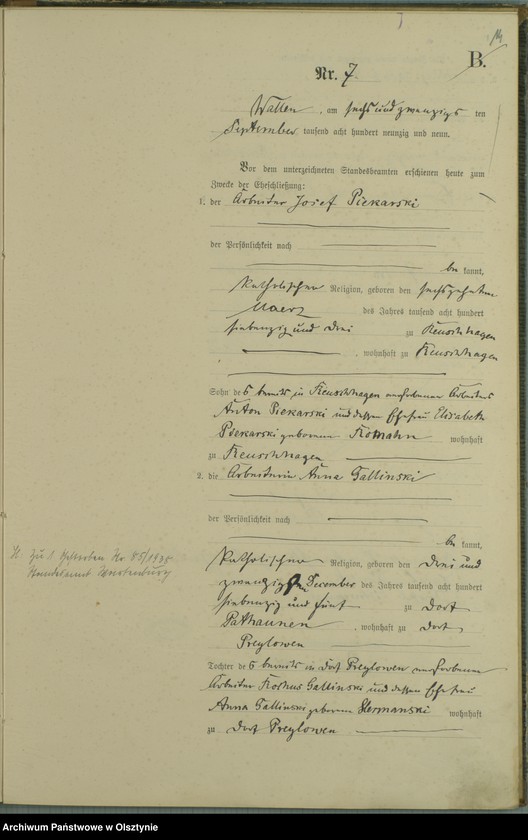 14
B.
Nr. 7.
Wallen, am sechsundzwanzigs ten
September tausend acht hundert neunzig und neun.
Vor dem unterzeichneten Standesbeamten erschienen heute zum
Zwecke der Eheschließung:
1. der Arbeiter Josef Piekarski
der Persönlichkeit nach
be kannt,
katholischer Religion, geboren den sechszehnten
Maerz des Jahres tausend acht hundert
siebenzig und drei zu Reuschhagen
, wohnhaft zu Reuschhagen
Sohn des bereits in Reuschhagen verstorbenen Arbeiters
Anton Piekarski und dessen Ehefrau Elisabeth
Piekarski geborenen wohnhaft
zu Reuschhagen
2. die Arbeiterin Anna Gallinski
der Persönlichkeit nach
be kannt,
katholischer Religion, geboren den drei und
zwanzigsten December des Jahres tausend acht hundert
siebenzig und fünf zu Dorf
Pathaunen, wohnhaft zu Dorf
Preylowen
Tochter des bereits in Dorf Preylowen verstorbenen
Arbeiter Gallinski und dessen Ehefrau
Anna Gallinski geborenen wohnhaft
zu Dorf Preylowen
H. Zu 1. gestorben Nr. 85/1935
Standesamt Wartenburg
Archiwum Państwowe w Olsztynie